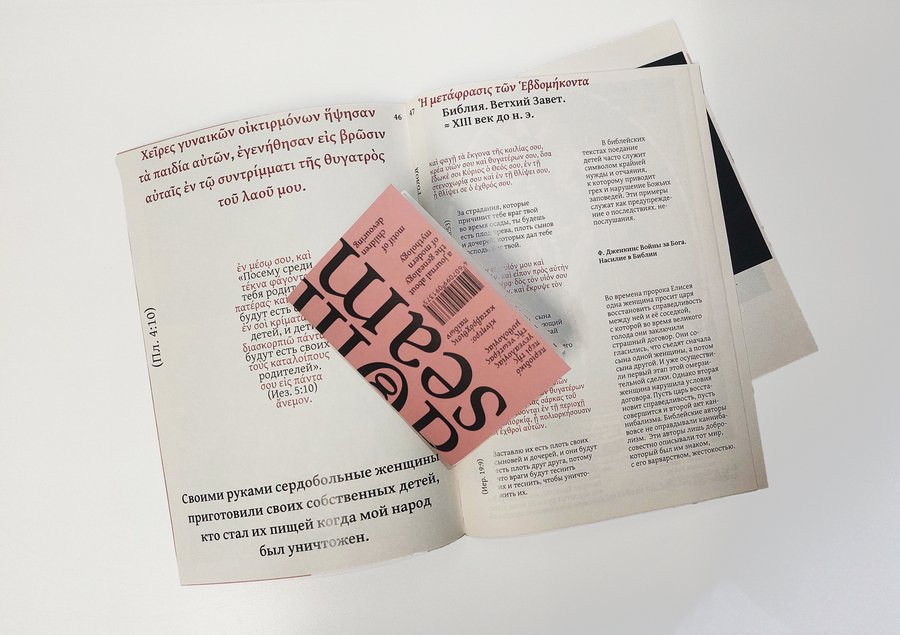 Χεῖρες γυναικῶν οἰκτιρμόνων ἥψησαν
τὰ παιδία αὐτῶν, ἐγενήθησαν εἰς βρῶσιν
αὐταῖς ἐν τῷ συντρίμματι τῆς θυγατρὸς
τοῦ λαοῦ μου.
46
(Пл. 4:10)
ἐν μέσῳ σου, καὶ
«Посему среди
τέκνα φάγονται
тебя родит
πατέρας· καὶ
будут есть
ἐν σοὶ κρίματα
детей, и дети
διασκορπιῶ πάντα
будут есть своих
τοὺς καταλοίπους
родителей».
σου εἰς πάντα
(Иез. 5:10)
ἄνεμον.
Своими руками сердобольные женщины
приготовили своих собственных детей,
кто стал их пищей когда мой народ
был уничтожен.
47
Ἡ μετάφρασις τῶν Ἑβδομήκοντα
Библия. Ветхий Завет.
≈ XIII век до н. э.
καὶ φαγῇ τὰ ἔκγονα τῆς κοιλίας σου,
κρέα υἱῶν σου καὶ θυγατέρων σου, ὅσα
ἔδωκέ σοι Κύριος ὁ Θεός σου, ἐν τῇ
στενοχωρίᾳ σου καὶ ἐν τῇ θλίψει σου,
ᾗ θλίψει σε ὁ ἐχθρός σου.
За страдания, которые
причинит тебе враг твой
во время осады, ты будешь
есть плод чрева, плоть сынов
и дочерей, которых дал тебе
Господь, твой.
μου καὶ
καὶ εἶπον πρὸς αὐτήν
δὸς τὸν υἱόν σου
καὶ ἔκρυψε τὸν
сына
θυγατέρων
σάρκας τοῦ
ἐν τῇ περιοχῇ
πολιορκήσουσιν
ἐχθροὶ αὐτῶν.
Заставлю их есть плоть своих
сыновей и дочерей, и они будут
есть плоть друг друга, потому
что враги будут теснить
их и теснить, чтобы уничто-
жить их.
(Иер. 19:9)
В библейских
текстах поедание
детей часто служит
символом крайней
нужды и отчаяния,
к которому приводит
грех и нарушение Божьих
заповедей. Эти примеры
служат как предупрежде-
ние о последствиях, не-
послушания.
Ф. Дженкинс Войны за Бога.
Насилие в Библии
Во времена пророка Елисея
одна женщина просит царя
восстановить справедливость
между ней и её соседкой,
с которой во время великого
голода они заключили
страшный договор. Они со-
гласились, что съедят сначала
сына одной женщины, а потом
сына другой. И уже осуществи-
ли первый этап этой омерзи-
тельной сделки. Однако вторая
женщина нарушила условия
договора. Пусть царь восста-
новит справедливость, пусть
совершится и второй акт кан-
нибализма. Библейские авторы
вовсе не оправдывали канниба-
лизм. Эти авторы лишь добро-
совестно описывали тот мир,
который был им знаком,
с его варварством, жестокостью.
a journal about
the genealogy
of modern
mythology
motif of
children
devouring
περιοδικό
περί της
γενεαλογίας
της νεωτέρας
μυθολογίας
κίνητρο:
καταβρόχθιση
παιδιών